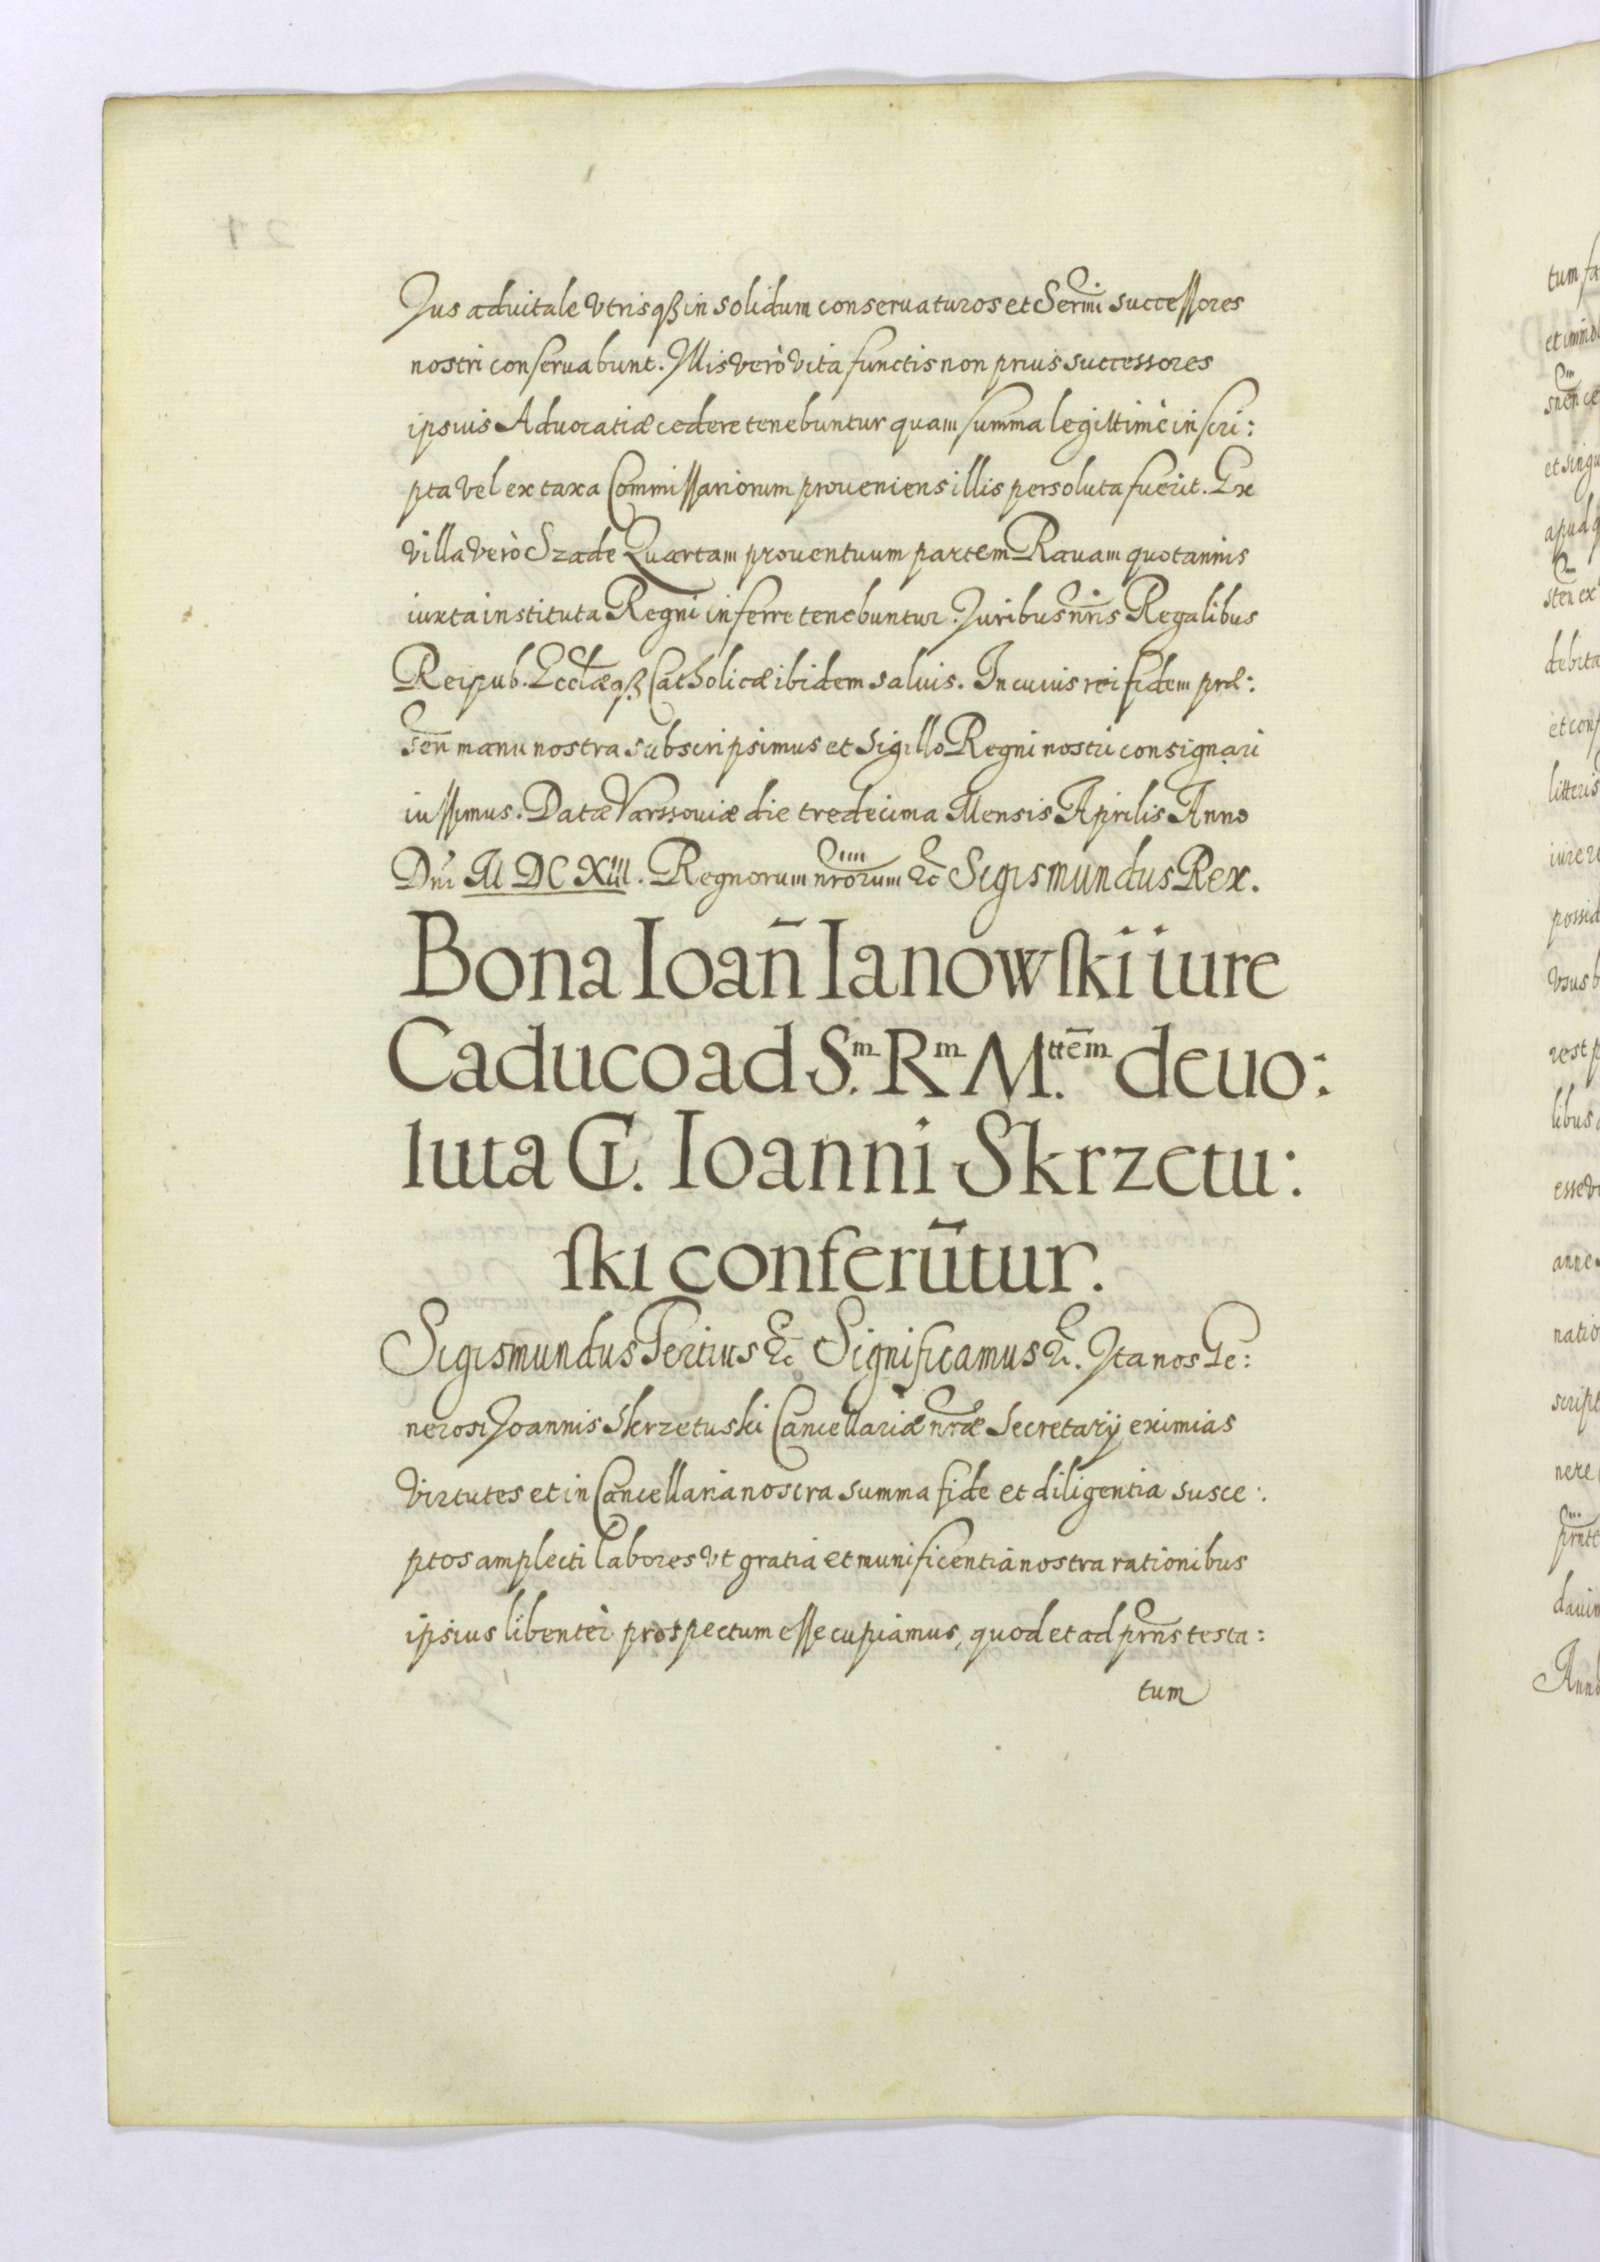 Jus aduitale Vtrisqȝ in solidum conseruaturos et Sermi successores
nostri conseruabunt. Illis verò vita functis non prius successores
ipsius Aduocatiæ cedere tenebuntur quam summa legittimè inscri:
pta vel ex taxa Commissariorum proueniens illis persoluta fuerit. Ex
villa verò Szade Quartam prouentuum partem Rauam quotannis
iuxta instituta Regni inferre tenebuntur. Juribus nris Regalibus
Reipub. Ecclæqȝ Catholicæ ibidem saluis. In cuius rei fidem præ:
sen manu nostra subscripsimus et Sigillo Regni nostri consignari
iussimus. Datæ Varssouiæ die tredecima Mensis Aprilis Anno
Dni M DC XIII. Regnorum nrorum &c Sigismundus Rex.
Bona Ioan̄ Ianowski iure
Caduco ad S.m Rm M.ttem deuo:
luta G. Ioanni Skrzetu:
ski conferūtur.
Sigismundus Tertius &c Significamus &c. Ita nos Ge:
nerosi Joannis Skrzetuski Cancellariæ nræ Secretarij eximias
virtutes et in Cancellaria nostra summa fide et diligentia susce:
ptos amplecti labores vt gratia et munificentia nostra rationibus
ipsius libentèr prospectum esse cupiamus, quod et ad prns testa:
tum